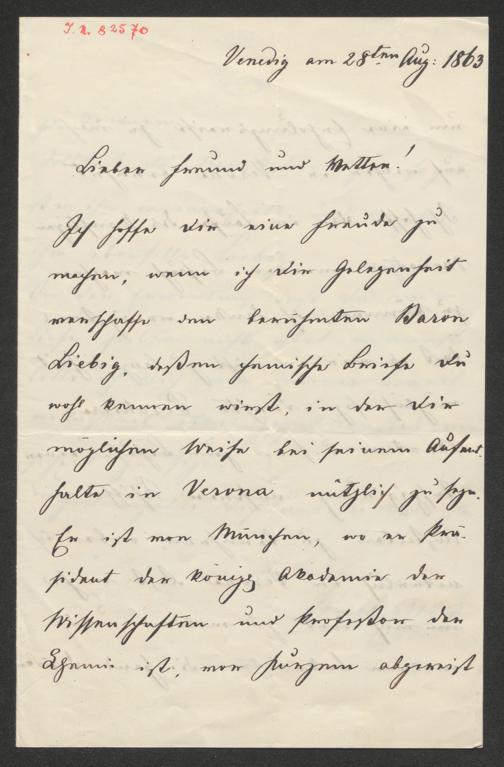 J. N. 82570
Venedig am 28ten Aug: 1863
Lieber Freund und Vetter!
Ich hoffe Dir eine Freude zu
machen, wenn ich Dir Gelegenheit
verschaffe dem berühmten Baron
Liebig, deßen chemische Briefe Du
wohl kennen wirst, in der Dir
möglichen Weise bei seinem Aufent-
halte in Verona nützlich zu seyn.
Er ist von München, wo er Prä-
sident der königl Akademie der
Wissenschaften und Professor der
Chemie ist, vor Kurzem abgereist